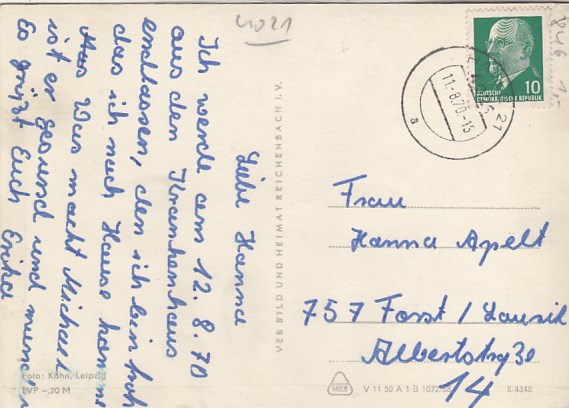 4021
Liebe Hanna
Ich werde am 12. 8. 70
aus den Krankenhaus
enclassen, den ich bin froh
das ich nach Hause komme
Aus Was macht Michael
ist er gesund und munter
Es grüßt Euch Erika
Foto: Kühn, Leipzig
EVP -,20 M
VEB BILD UND HEIMAT REICHENBACH I. V.
11.-8.70.-15
21
a
10
DEUTSCHE
DEMOKRATISCHE REPUBLIK
846 1,-
Frau
Hanna Apelt
757 Forst / Lausik
Albertstrße
14
V 11 50 A 1 B
8.4348